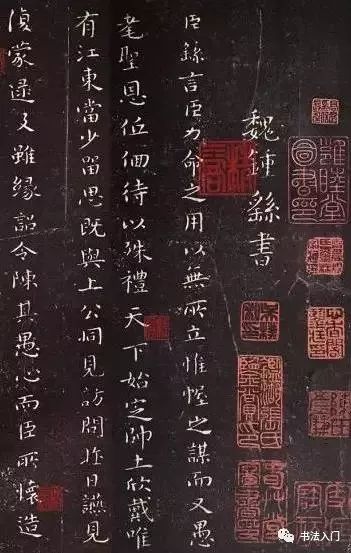 魏鍾繇書
臣繇言臣力命之用以無所立惟幄之謀而又愚
耄聖恩低佪待以殊禮天下始定帥土欣戴唯
有江東當少留思既與上公同見訪問昨日讌見
復蒙逮及雖緣詔令陳其愚心而臣所懷造
书法入门